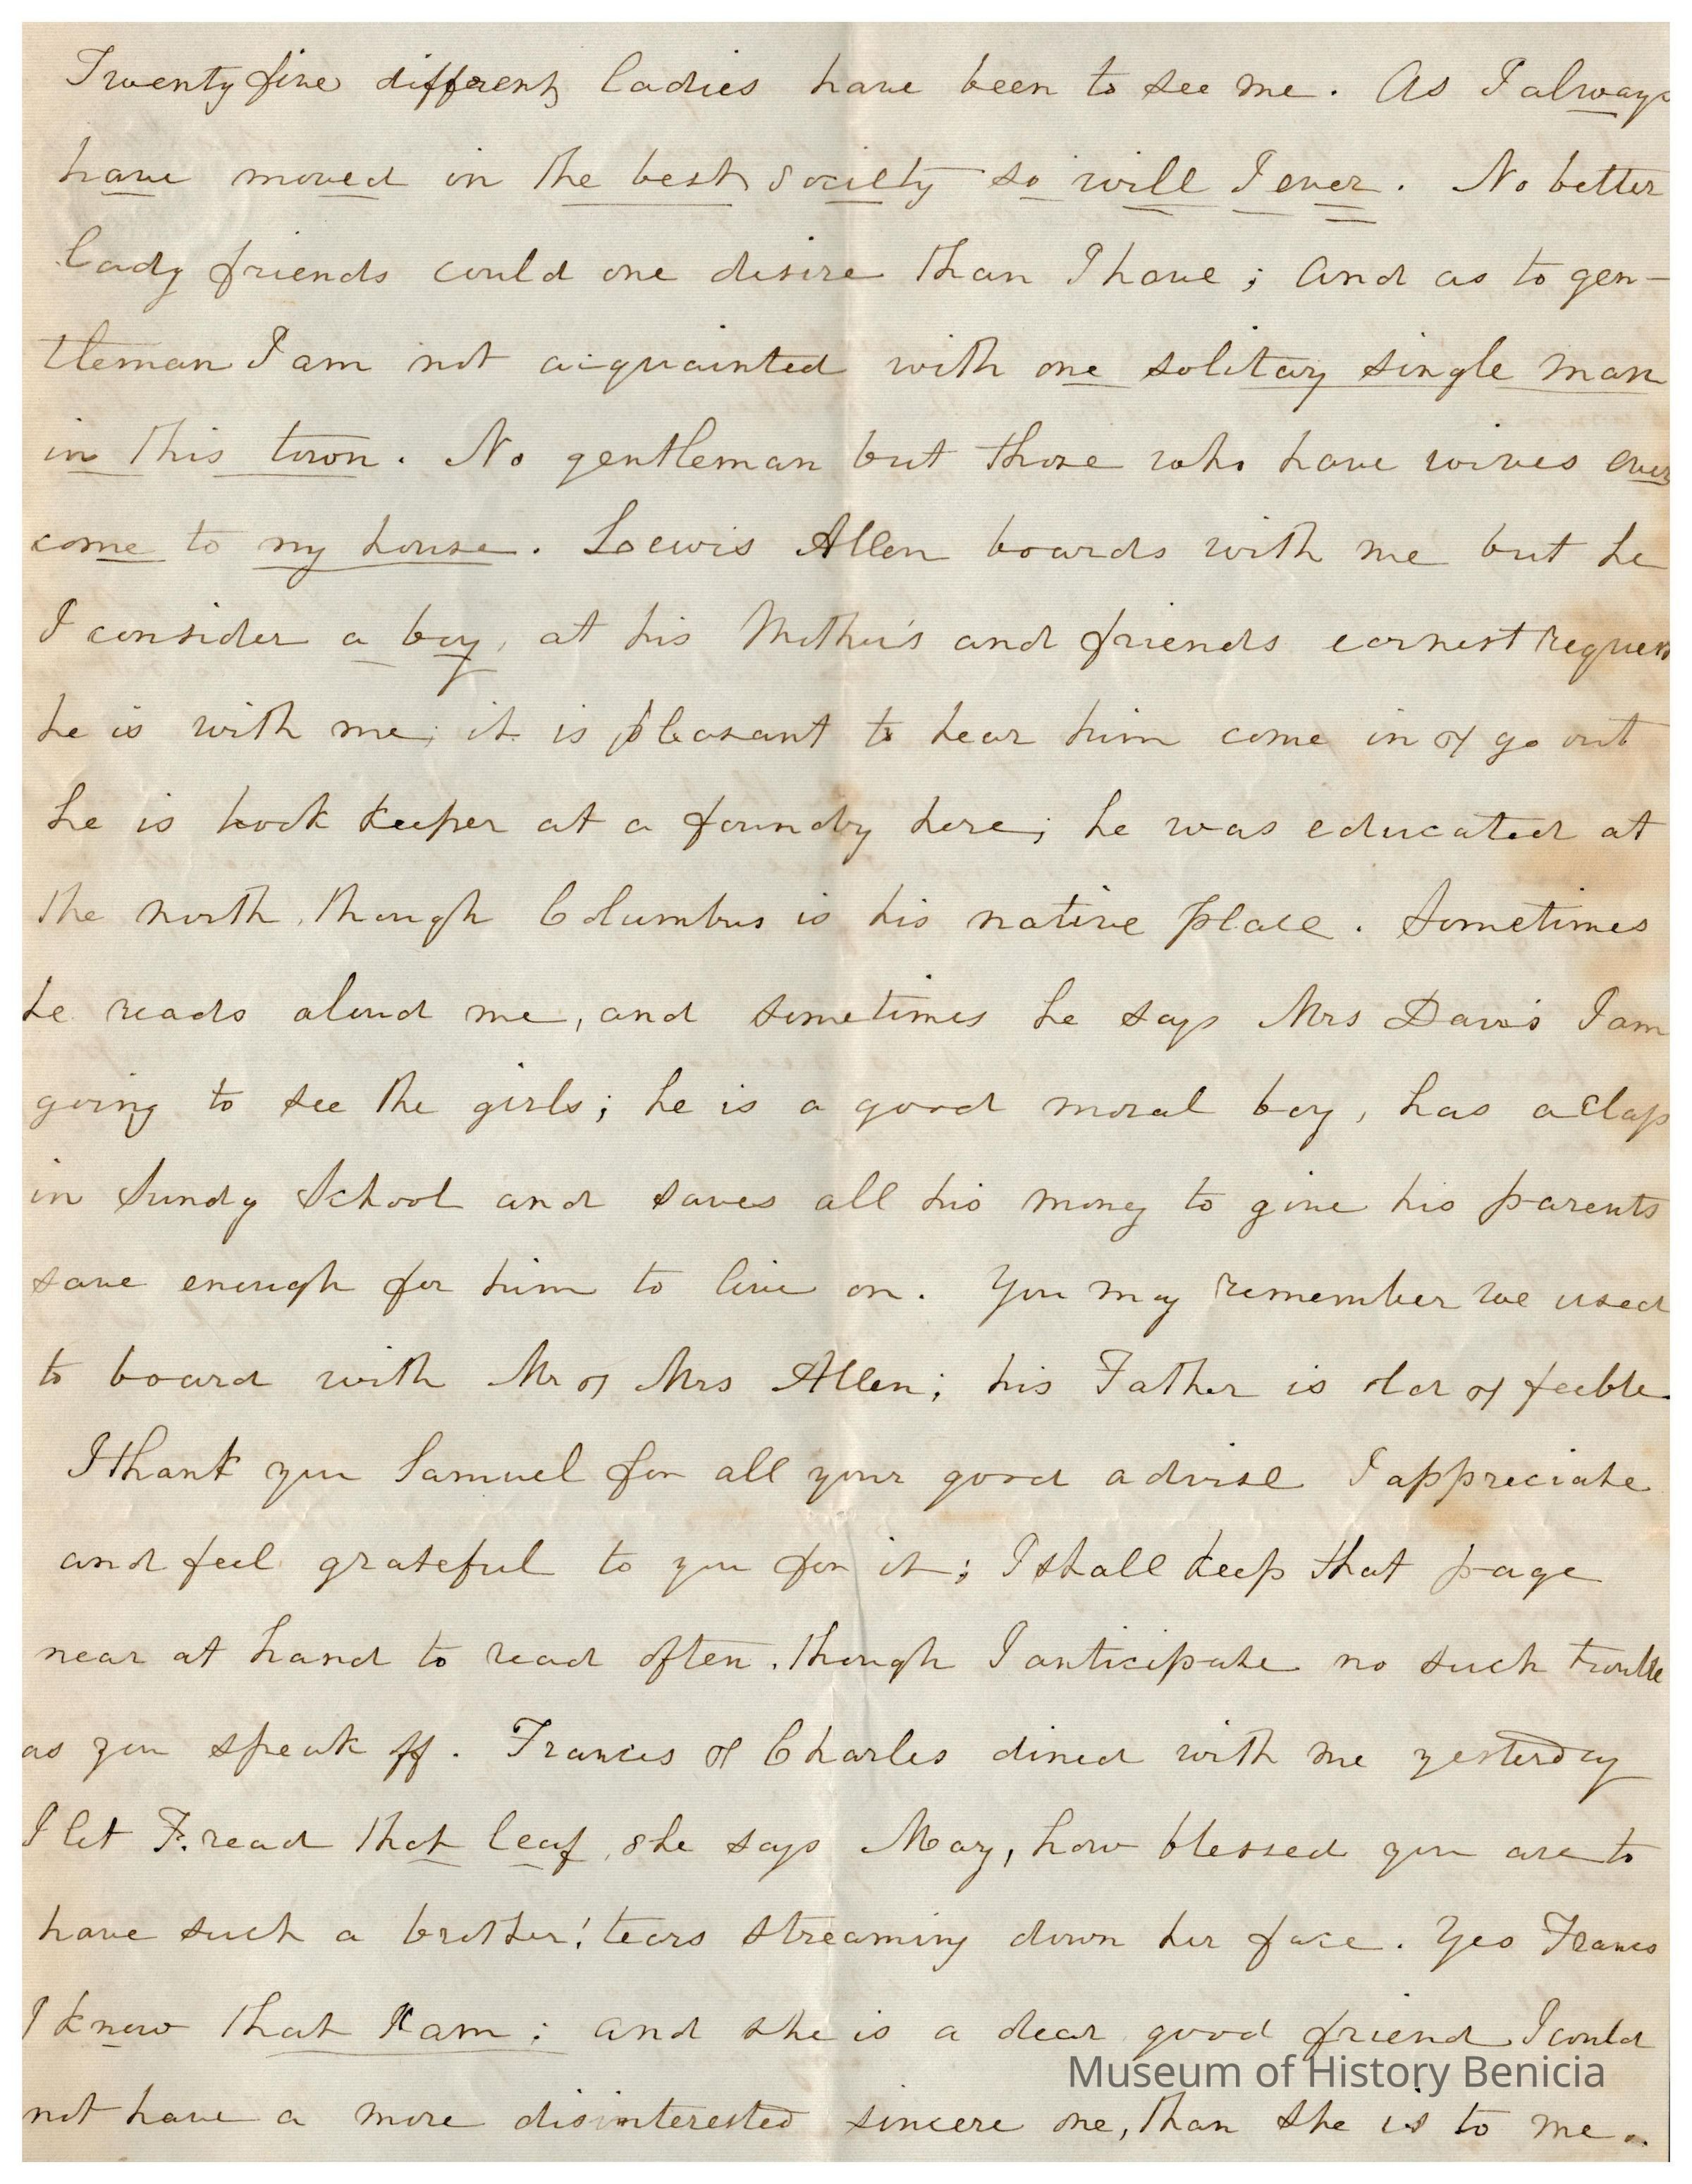 Twenty five different ladies have been to see me. As I always
have moved in the best society so will I ever. No better
lady friends could one desire than I have; and as to gen-
tleman I am not acquainted with one solitary single man
in this town. No gentleman but those who have wives ever
come to my house. Loewis Allen boards with me but he
I consider a boy, at his Mother's and friends earnest request
he is with me; it is pleasant to hear him come in & go out
he is book keeper at a foundry here; he was educated at
the north, though Columbus is his native place. Sometimes
he reads aloud me, and sometimes he says Mrs Davis I am
going to see the girls; he is a good moral boy, has a class
in Sundy School and saves all his money to give his parents
save enough for him to live on. You may remember we used
to board with Mr & Mrs Allen; his Father is old & feeble.
I thank you Samuel for all your good advise I appreciate
and feel grateful to you for it; I shall keep that page
near at hand to read often, though I anticipate no such trouble
as you speak off. Frances & Charles dined with me yesterday
I let F. read that leaf, she says May, how blessed you are to
have such a brother! tears streaming down her face. Yes Frances
I know that I am; and she is a dear good friend I could
not have a more disinterested sincere one, than she is to me.
Museum of History Benicia